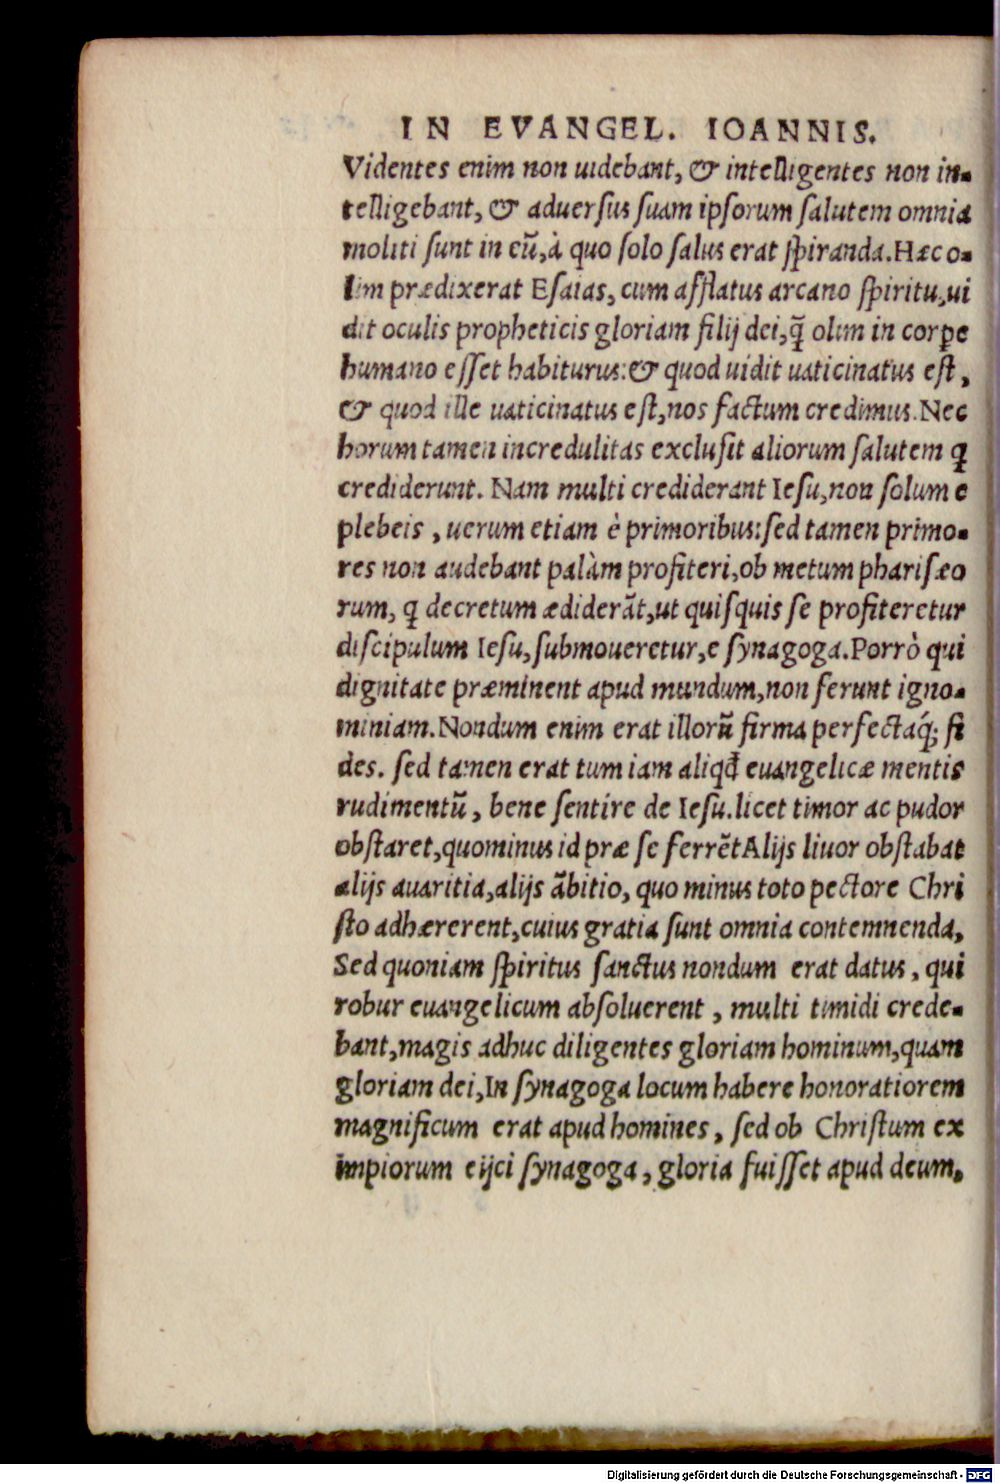 IN EVANGEL. IOANNIS.
Videntes enim non uidebant, & intelligentes non in-
telligebant, & aduersus suam ipsorum salutem omnia
moliti sunt in eũ, à quo solo salus erat spiranda. Hæc o-
lim prædixerat Esaias, cum afflatus arcano spiritu, ui
dit oculis propheticis gloriam filij dei, q̃ olim in corꝑe
humano esset habiturus: & quod uidit uaticinatus est,
& quod ille uaticinatus est, nos factum credimus. Nec
horum tamen incredulitas exclusit aliorum salutem ꝗ
crediderunt. Nam multi crediderant Iesu, non solum e
plebeis, uerum etiam è primoribus: sed tamen primo-
res non audebant palàm profiteri, ob metum pharisæo
rum, ꝗ decretum ædiderãt, ut quisquis se profiteretur
discipulum Iesu, submoueretur, e synagoga. Porrò qui
dignitate præminent apud mundum, non ferunt igno-
miniam. Nondum enim erat illorũ firma perfectaq́; fi
des. sed tamen erat tum iam aliqd̃ euangelicæ mentis
rudimentũ, bene sentire de Iesu. licet timor ac pudor
obstaret, quominus id præ se ferrẽt Alijs liuor obstabat
alijs auaritia, alijs ãbitio, quo minus toto pectore Chri
sto adhærerent, cuius gratia sunt omnia contemnenda,
Sed quoniam spiritus sanctus nondum erat datus, qui
robur euangelicum absoluerent, multi timidi crede-
bant, magis adhuc diligentes gloriam hominum, quam
gloriam dei, In synagoga locum habere honoratiorem
magnificum erat apud homines, sed ob Christum ex
impiorum eijci synagoga, gloria fuisset apud deum,
Digitalisierung gefördert durch die Deutsche Forschungsgemeinschaft - DFG